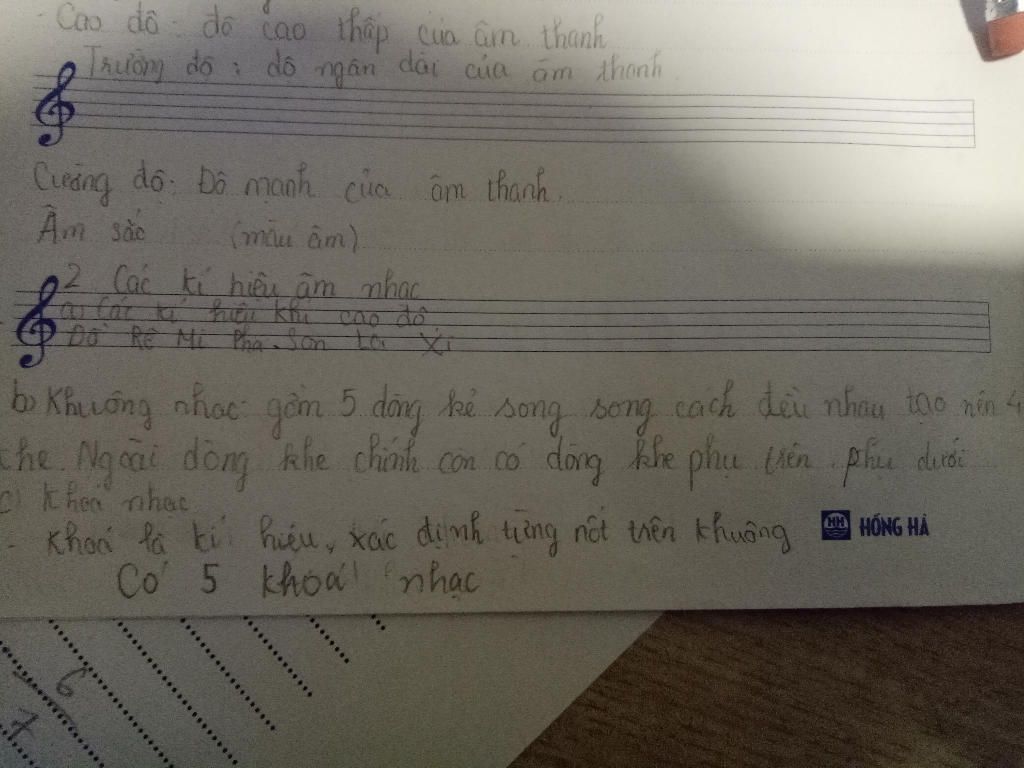 - Cao độ: độ cao thấp của âm thanh
Trường độ: độ ngân dài của âm thanh.
Cường độ: Độ mạnh của âm thanh.
Âm sắc (màu âm)
2 Các kí hiệu âm nhạc
a) Các kí hiệu khi cao độ
Đồ Rê Mi Pha Son La Xi
b) Khuông nhạc: gồm 5 dòng kẻ song song cách đều nhau tạo nên 4
khe. Ngoài dòng khe chính còn có dòng khe phụ trên phụ dưới
c) Khoá nhạc
- Khoá là kí hiệu, xác định từng nốt trên khuông
HỒNG HÀ
Có 5 khoá nhạc
6
7